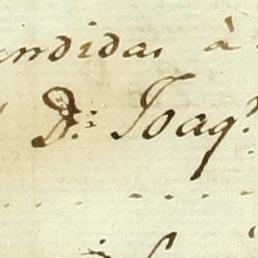 endidas à
Dⁿ Joaqⁿ